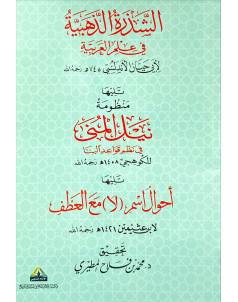 الشذرة الذهبية
في علم العربية
لأبي حيان الأندلسي ٧٤٥ هـ رحمه الله
تليها
منظومة
نيل المنى
في نظم قواعد البنا
للكوهجي ١٤٠٨ هـ رحمه الله
تليها
أحوال اسم (لا) مع العطف
لابن عثيمين ١٤٢١ هـ رحمه الله
تحقيق
د. محمد بن فلاح المطيري